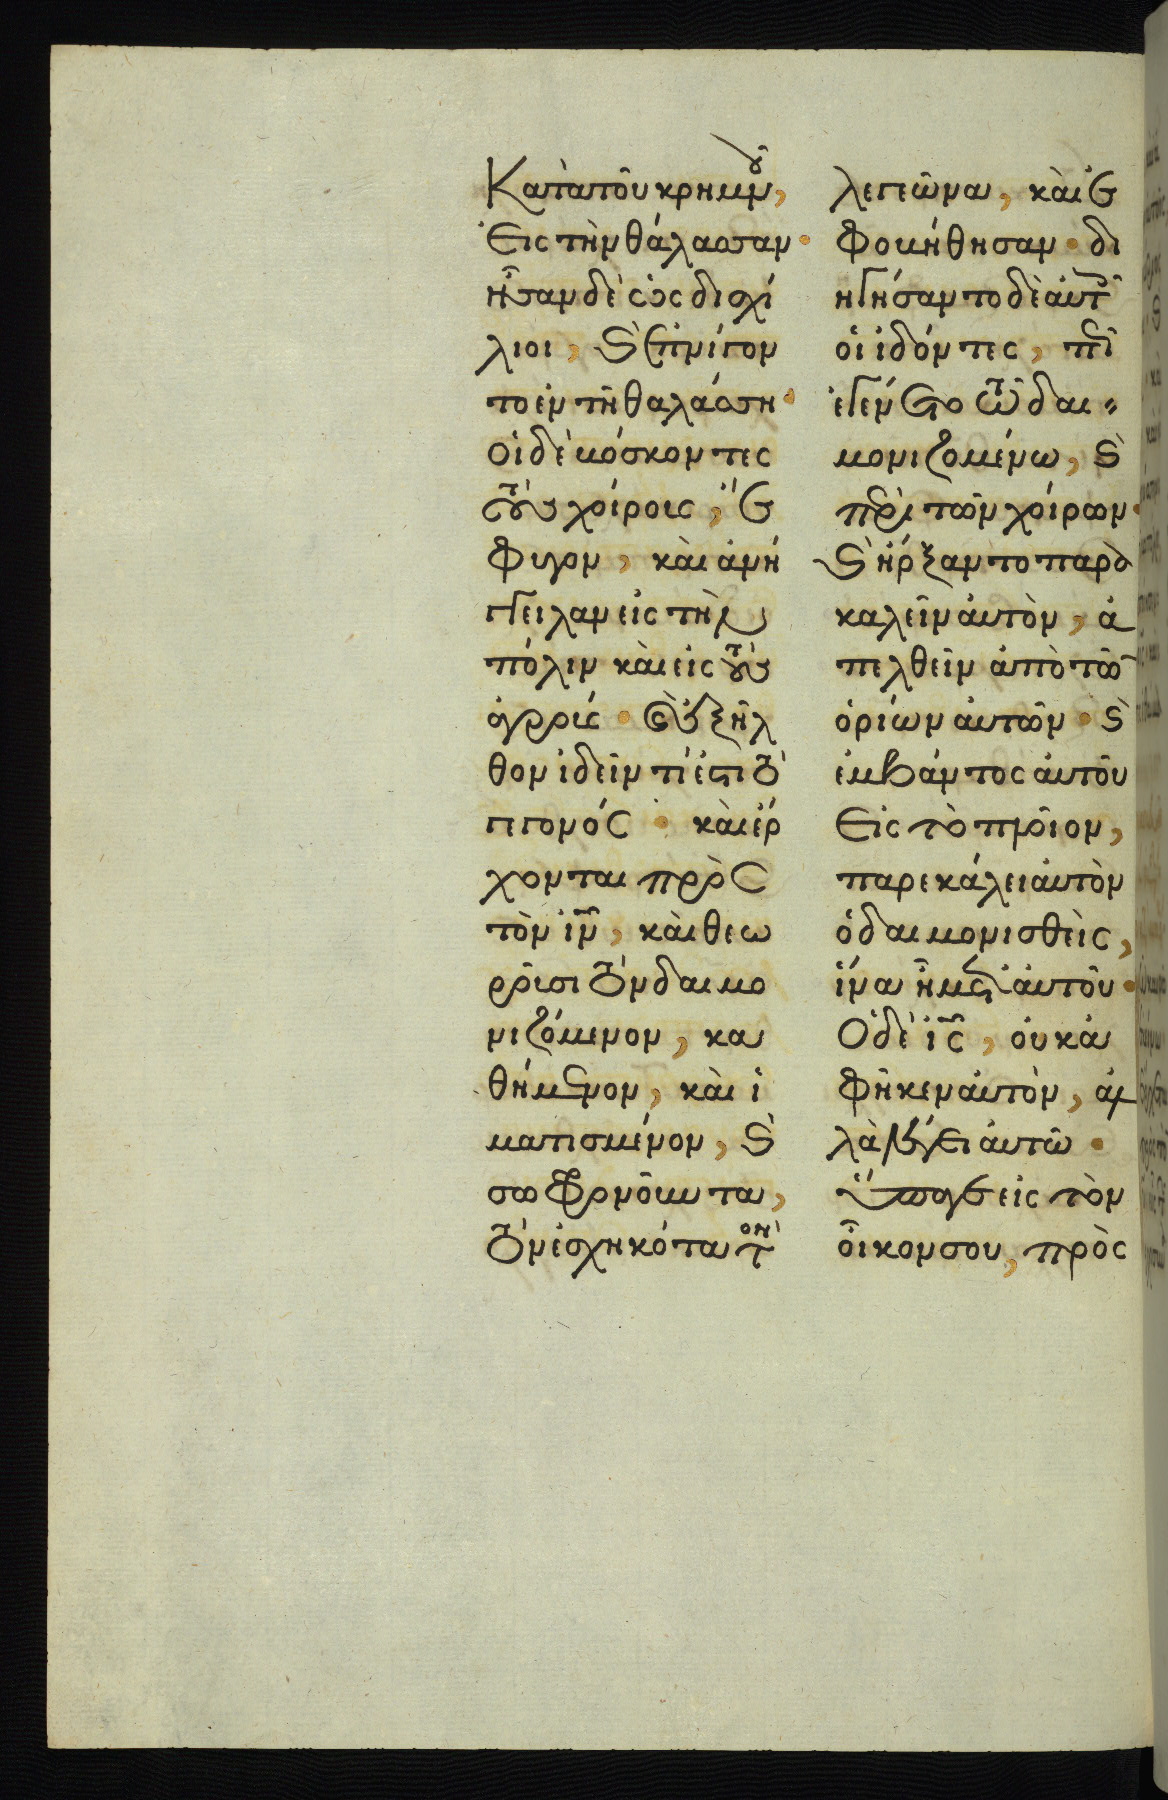 Κατὰ τοῦ κρημνοῦ,
Εἰς τὴν θάλασσαν·
ἦσαν δὲ ὡς δισχί
λιοι, ϗ ἐπνίγον
το ἐν τῆ θαλάσση·
Οἱ δὲ βόσκοντες
τοὺς χοίρους, ἔ
φυγον, καὶ ἀνή
γγειλαν εἰς τὴν
πόλιν καὶ εἰς τοὺς
ἀγρούς· καὶ ἐξῆλ
θον ἰδεῖν τί ἐστι τὸ
γεγονός· καὶ ἔρ
χονται πρὸς
τὸν ἰν, καὶ θεω
ροῦσι τὸν δαιμο
νιζόμενον, κα
θήμενον, καὶ ἱ
ματισμένον, ϗ
σωφρονοῦντα,
τὸν ἐσχηκότα τὸν
λεγεῶνα, καὶ ἐ
φοβήθησαν· δι
ηγήσαντο δὲ αὐτοῖς
οἱ ἰδόντες, πῶς
ἐγένετο τῶ δαι
μονιζομένω, ϗ
περὶ τῶν χοίρων·
ϗ ἤρξαντο παρα
καλεῖν αὐτὸν, ἀ
πελθεῖν ἀπὸ τῶν
ὁρίων αὐτῶν· ϗ
ἐμβάντος αὐτοῦ
Εἰς τὸ πλοῖον,
παρεκάλει αὐτὸν
ὁ δαιμονισθεὶς,
ἵνα ἦ μετ' αὐτοῦ·
Ὁ δὲ ἰς, οὐκ ἀ
φῆκεν αὐτὸν, ἀλ
λὰ λέγει αὐτῶ·
ὕπαγε εἰς τὸν
οἶκον σου, πρὸς